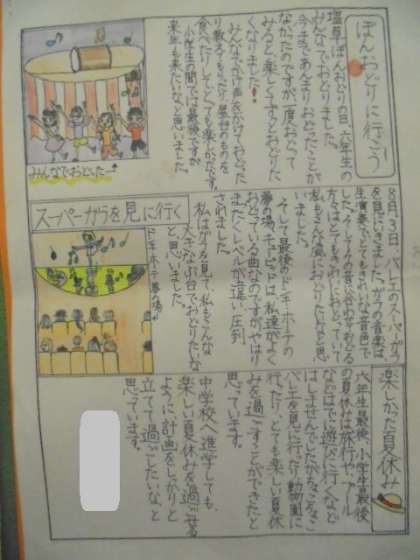 ぼんおどりに行こう
塩草ぼんおどりの日、六年生の
みんなでおどりました。
今まであんまりおどったことが
なかったのですが、一度おどって
みると、楽しくてずっとおどりた
くなりました。
みんなでかけ声をかけておどった
食べたりしてとても楽しかったです。
小学生の間では最後ですが、
来年も来たいなと思いました。
みんなでおどったー
スーパーガラを見に行く
8月3日、バレエのスーパーガラ
を見に行きました。ガラの音楽は
生演奏でとてもきれいな音色で
した。そしてその音に合わせおどる
方々はとてもきれいにおどり、
私もこんな風におどりたいなと思
いました。
そして最後のドン・キホーテの
夢の場、キューピッドは、私達がよく
おどっている曲なのですが、やはり
まったくレベルが違い圧倒
されました。
私はガラを見て、私もこんな
大きなぶ台でおどりたいな
と思いました。
ドン・キホーテ夢の場
楽しかった夏休み
六年生最後、小学生最後
の夏休みは旅行や、プール
などはでに遊びに行くなど
はしませんでしたが、ちょこちょこ
バレエを見に行ったり、動物園に
行ったり、とても楽しい夏休
みを過ごすことができたと
思っています。
中学校へ進学しても
楽しい夏休みを過ごせる
ように計画をしっかりと
立てて過ごしたいなと
思っています。